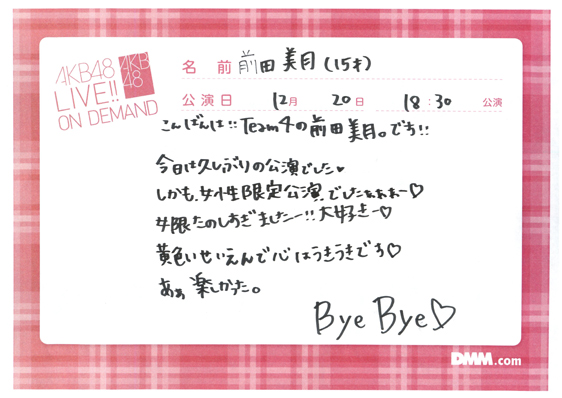 AKB48
LIVE!!
ON DEMAND
AKB
48
名 前 前田美月(15才)
公演日 12月 20日 18:30 公演
こんばんは!! Team4の前田美月。です!!
今日は久しぶりの公演でした♥
しかも、女性限定公演でしたぁぁぁー♡
女限たのしすぎましたー!!大好きー♡
黄色いせいえんで心はうきうきです♡
あぁ 楽しかった。
Bye Bye♡
DMM.com